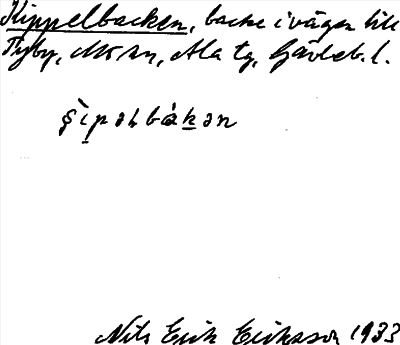 Kippelbacken, backe i vägen till
Tyby, Mo sn, Ala tg, Gävleb. l.
ʂìpəlbákən
Nils Erik Eriksson 1933